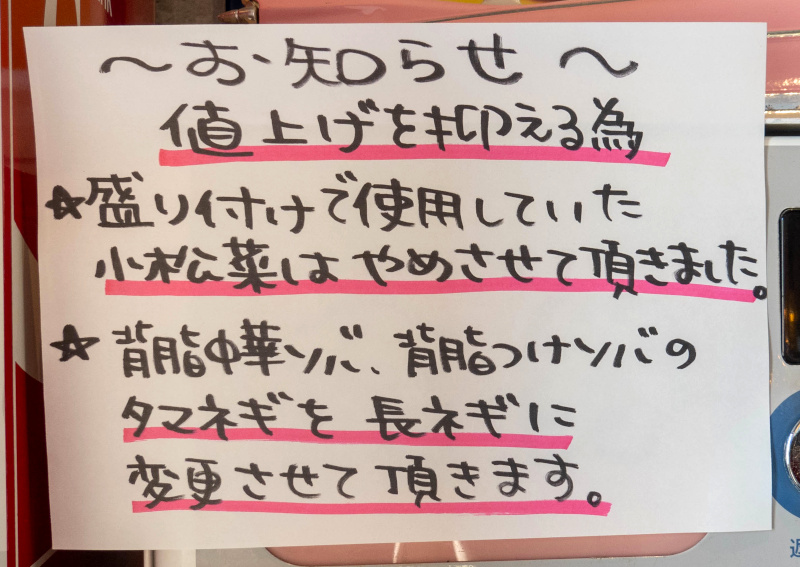 ～お知らせ～
値上げを抑える為
☆盛り付けで使用していた
小松菜はやめさせて頂きました。
☆背脂中華ソバ、背脂つけソバの
タマネギを長ネギに
変更させて頂きます。